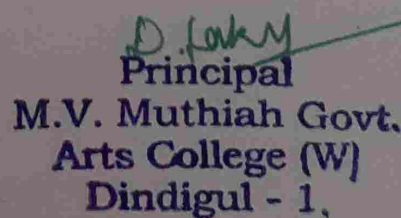 Principal
M.V. Muthiah Govt.
Arts College (W)
Dindigul - 1,